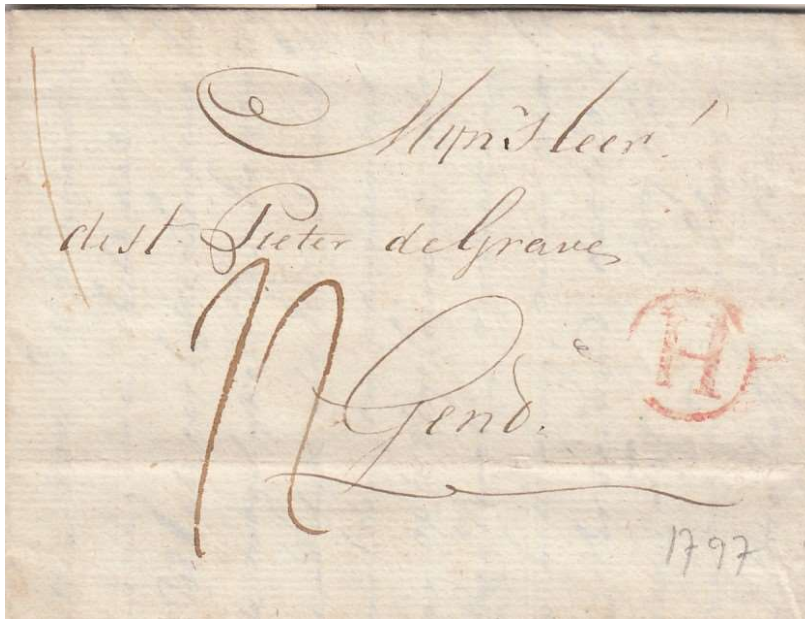 Mijn Heer!
de st. Pieter de Grave
Gend.
H
1797